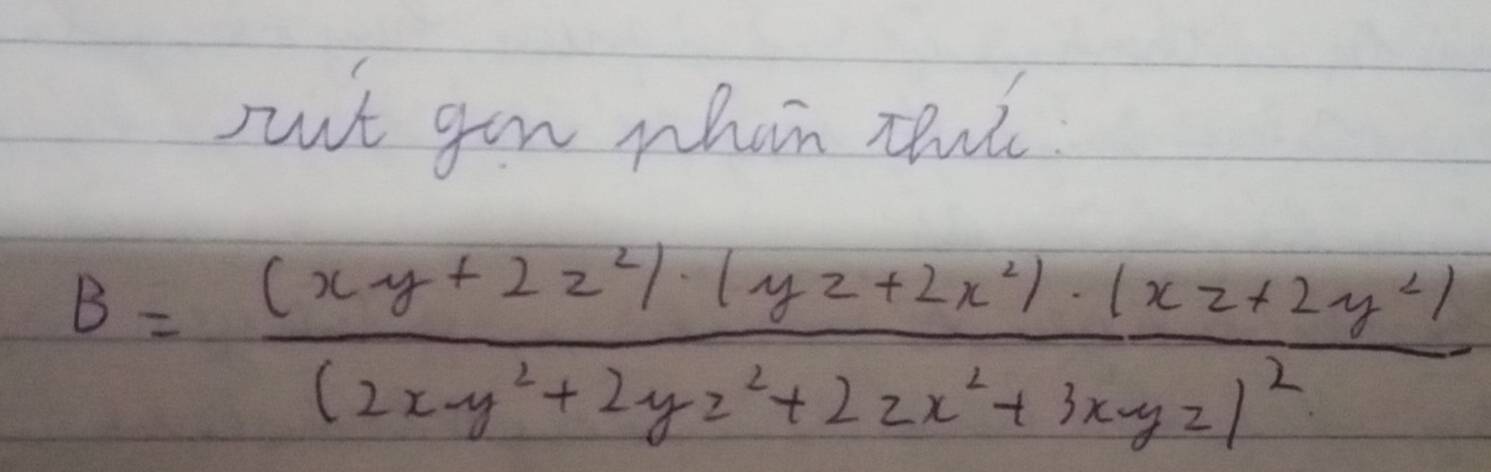 rút gọn phân thức:
B = (xy + 2z²) . (yz + 2x²) . (xz + 2y²)
(2xy² + 2yz² + 2zx² + 3xyz)²